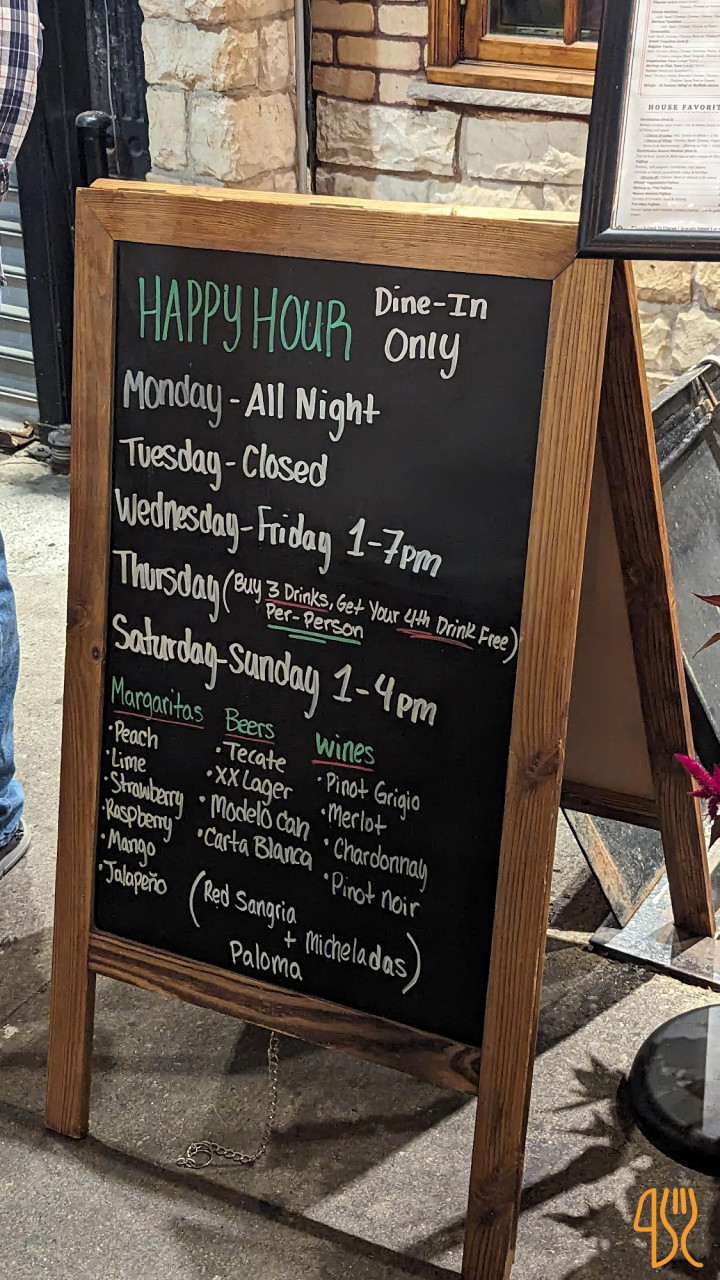 HAPPY HOUR Dine-In
Only
Monday - All Night
Tuesday - Closed
Wednesday - Friday 1-7pm
Thursday (Buy 3 Drinks, Get Your 4th Drink Free)
Per-Person
Saturday-Sunday 1-4pm
Margaritas
• Peach
• Lime
• Strawberry
• Raspberry
• Mango
• Jalapeño
Beers
• Tecate
• XX Lager
• Modelo Can
• Carta Blanca
Wines
• Pinot Grigio
• Merlot
• Chardonnay
• Pinot noir
(Red Sangria
+ micheladas)
Paloma
HOUSE FAVORIT